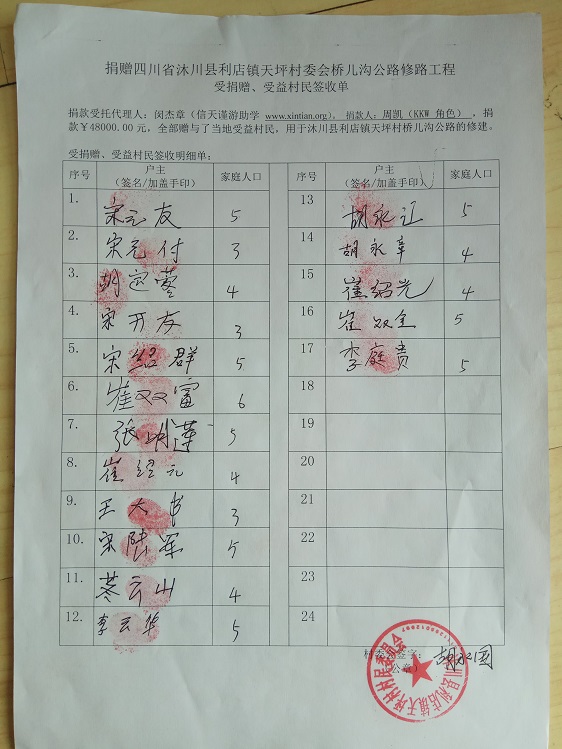 捐赠四川省沐川县利店镇天坪村委会桥儿沟公路修路工程
受捐赠、受益村民签收单
捐款受托代理人：闵杰章（信天谨游助学 www.xintian.org），捐款人：周凯（KKW 角色），捐
款￥48000.00 元，全部赠与了当地受益村民，用于沐川县利店镇天坪村桥儿沟公路的修建。
受捐赠、受益村民签收明细单：
序号 户主（签名/加盖手印） 家庭人口
1. 宋元友 5
2. 宋元付 3
3. 胡定蓥 4
4. 宋开友 3
5. 宋绍群 5
6. 崔双富 6
7. 张明莲 5
8. 崔绍元 4
9. 王大书 3
10. 宋陆军 5
11. 云山 4
12. 李云华 5
序号 户主（签名/加盖手印） 家庭人口
13 胡永江 5
14 胡永幸 4
15 崔绍光 4
16 崔双全 5
17 李庭贵 5
18
19
20
21
22
23
24
村委会签字：胡永国
（公章）
沐川县利店镇天坪村村民委员会